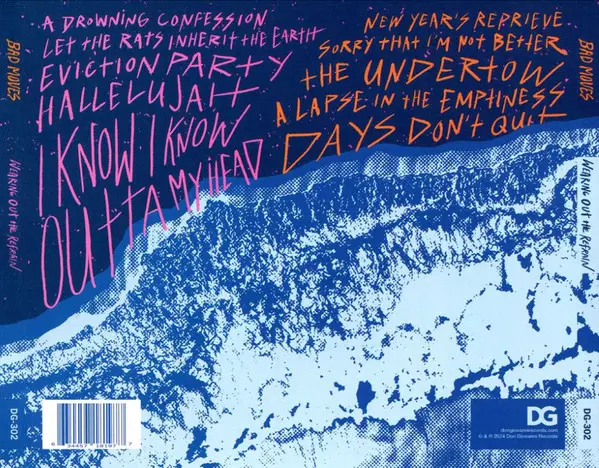 A DROWNING CONFESSION
LET THE RATS INHERIT THE EARTH
EVICTION PARTY
HALLELUJAH
I KNOW I KNOW
OUTTA MY HEAD
NEW YEAR'S REPRIEVE
SORRY THAT I'M NOT BETTER
THE UNDERTOW
A LAPSE IN THE EMPTINESS
DAYS DON'T QUIT
BAD MOVES
WEARING OUT THE REFRAIN
DG-302
BAD MOVES
WEARING OUT THE REFRAIN
DG-302
DG
dongiovannirecords.com
© & ℗ 2024 Don Giovanni Records